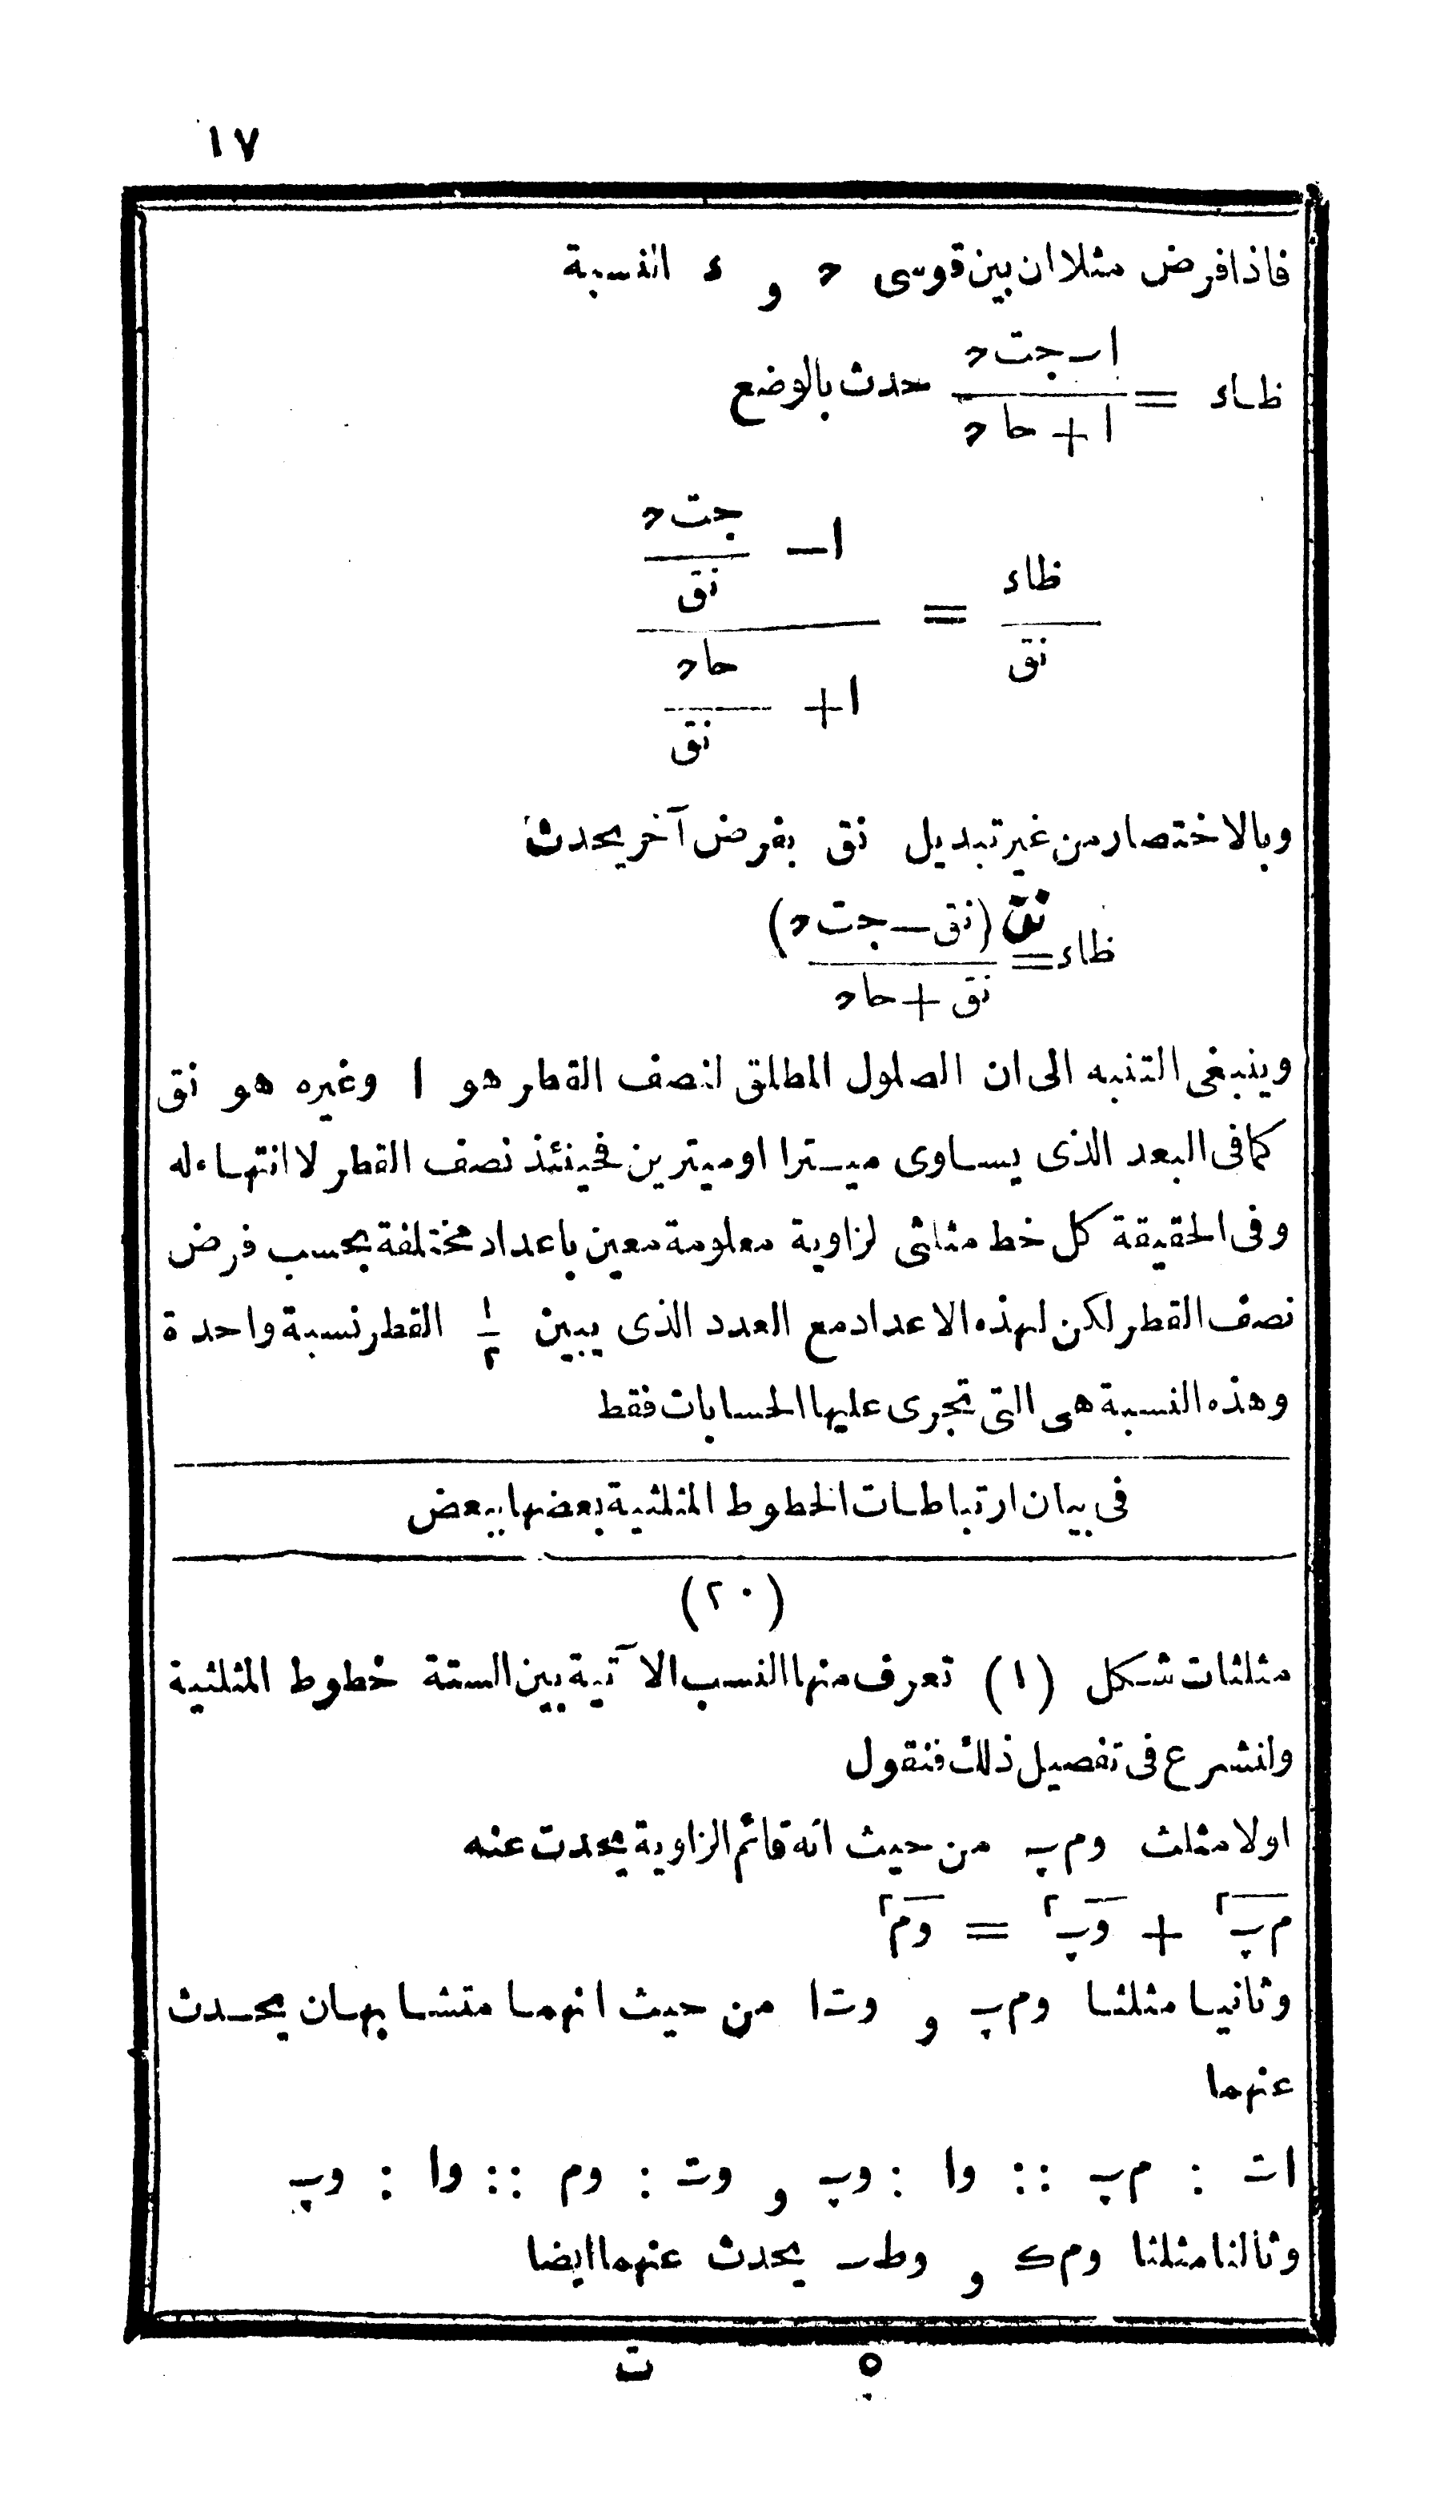 ١٧
فاذا فرض مثلا ان بين قوسى ح و ء النسبة
ظاء = (١ - جتح) / (١ + حاح) حدث بالوضع
ظاء / نق = (١ - جتح / نق) / (١ + حاح / نق)
وبالاختصار من غير تبديل نق بفرض آخر يحدث
ظاء = نق (نق - جتح) / (نق + حاح)
وينبغى التنبه الى ان الصلول المطلق لنصف القطر هو ١ وغيره هو نق
كما فى البعد الذى يساوى ميترا او ميترين فحينئذ نصف القطر لا انتهاء له
وفى الحقيقة كل خط مثلثى لزاوية معلومة معين باعداد مختلفة بحسب فرض
نصف القطر لكن لهذه الاعداد مع العدد الذى يبين ١/٢ القطر نسبة واحدة
وهذه النسبة هى التى تجرى عليها الحسابات فقط
فى بيان ارتباطات الخطوط المثلثية بعضها ببعض
(٢٠)
مثلثات شكل (١) تعرف منها النسب الآتية بين الستة خطوط المثلثية
ولنشرع فى تفصيل ذلك فنقول
اولا مثلث وم‍پ من حيث انه قائم الزاوية يحدث عنه
م‍پ٢ + وپ٢ = وم٢
وثانيا مثلثا وم‍پ و وتا من حيث انهما متشابهان يحدث
عنهما
ات : م‍پ :: وا : وپ و وت : وم :: وا : وپ
وثالثا مثلثا ومك و وطـ يحدث عنهما ايضا
٥ ت